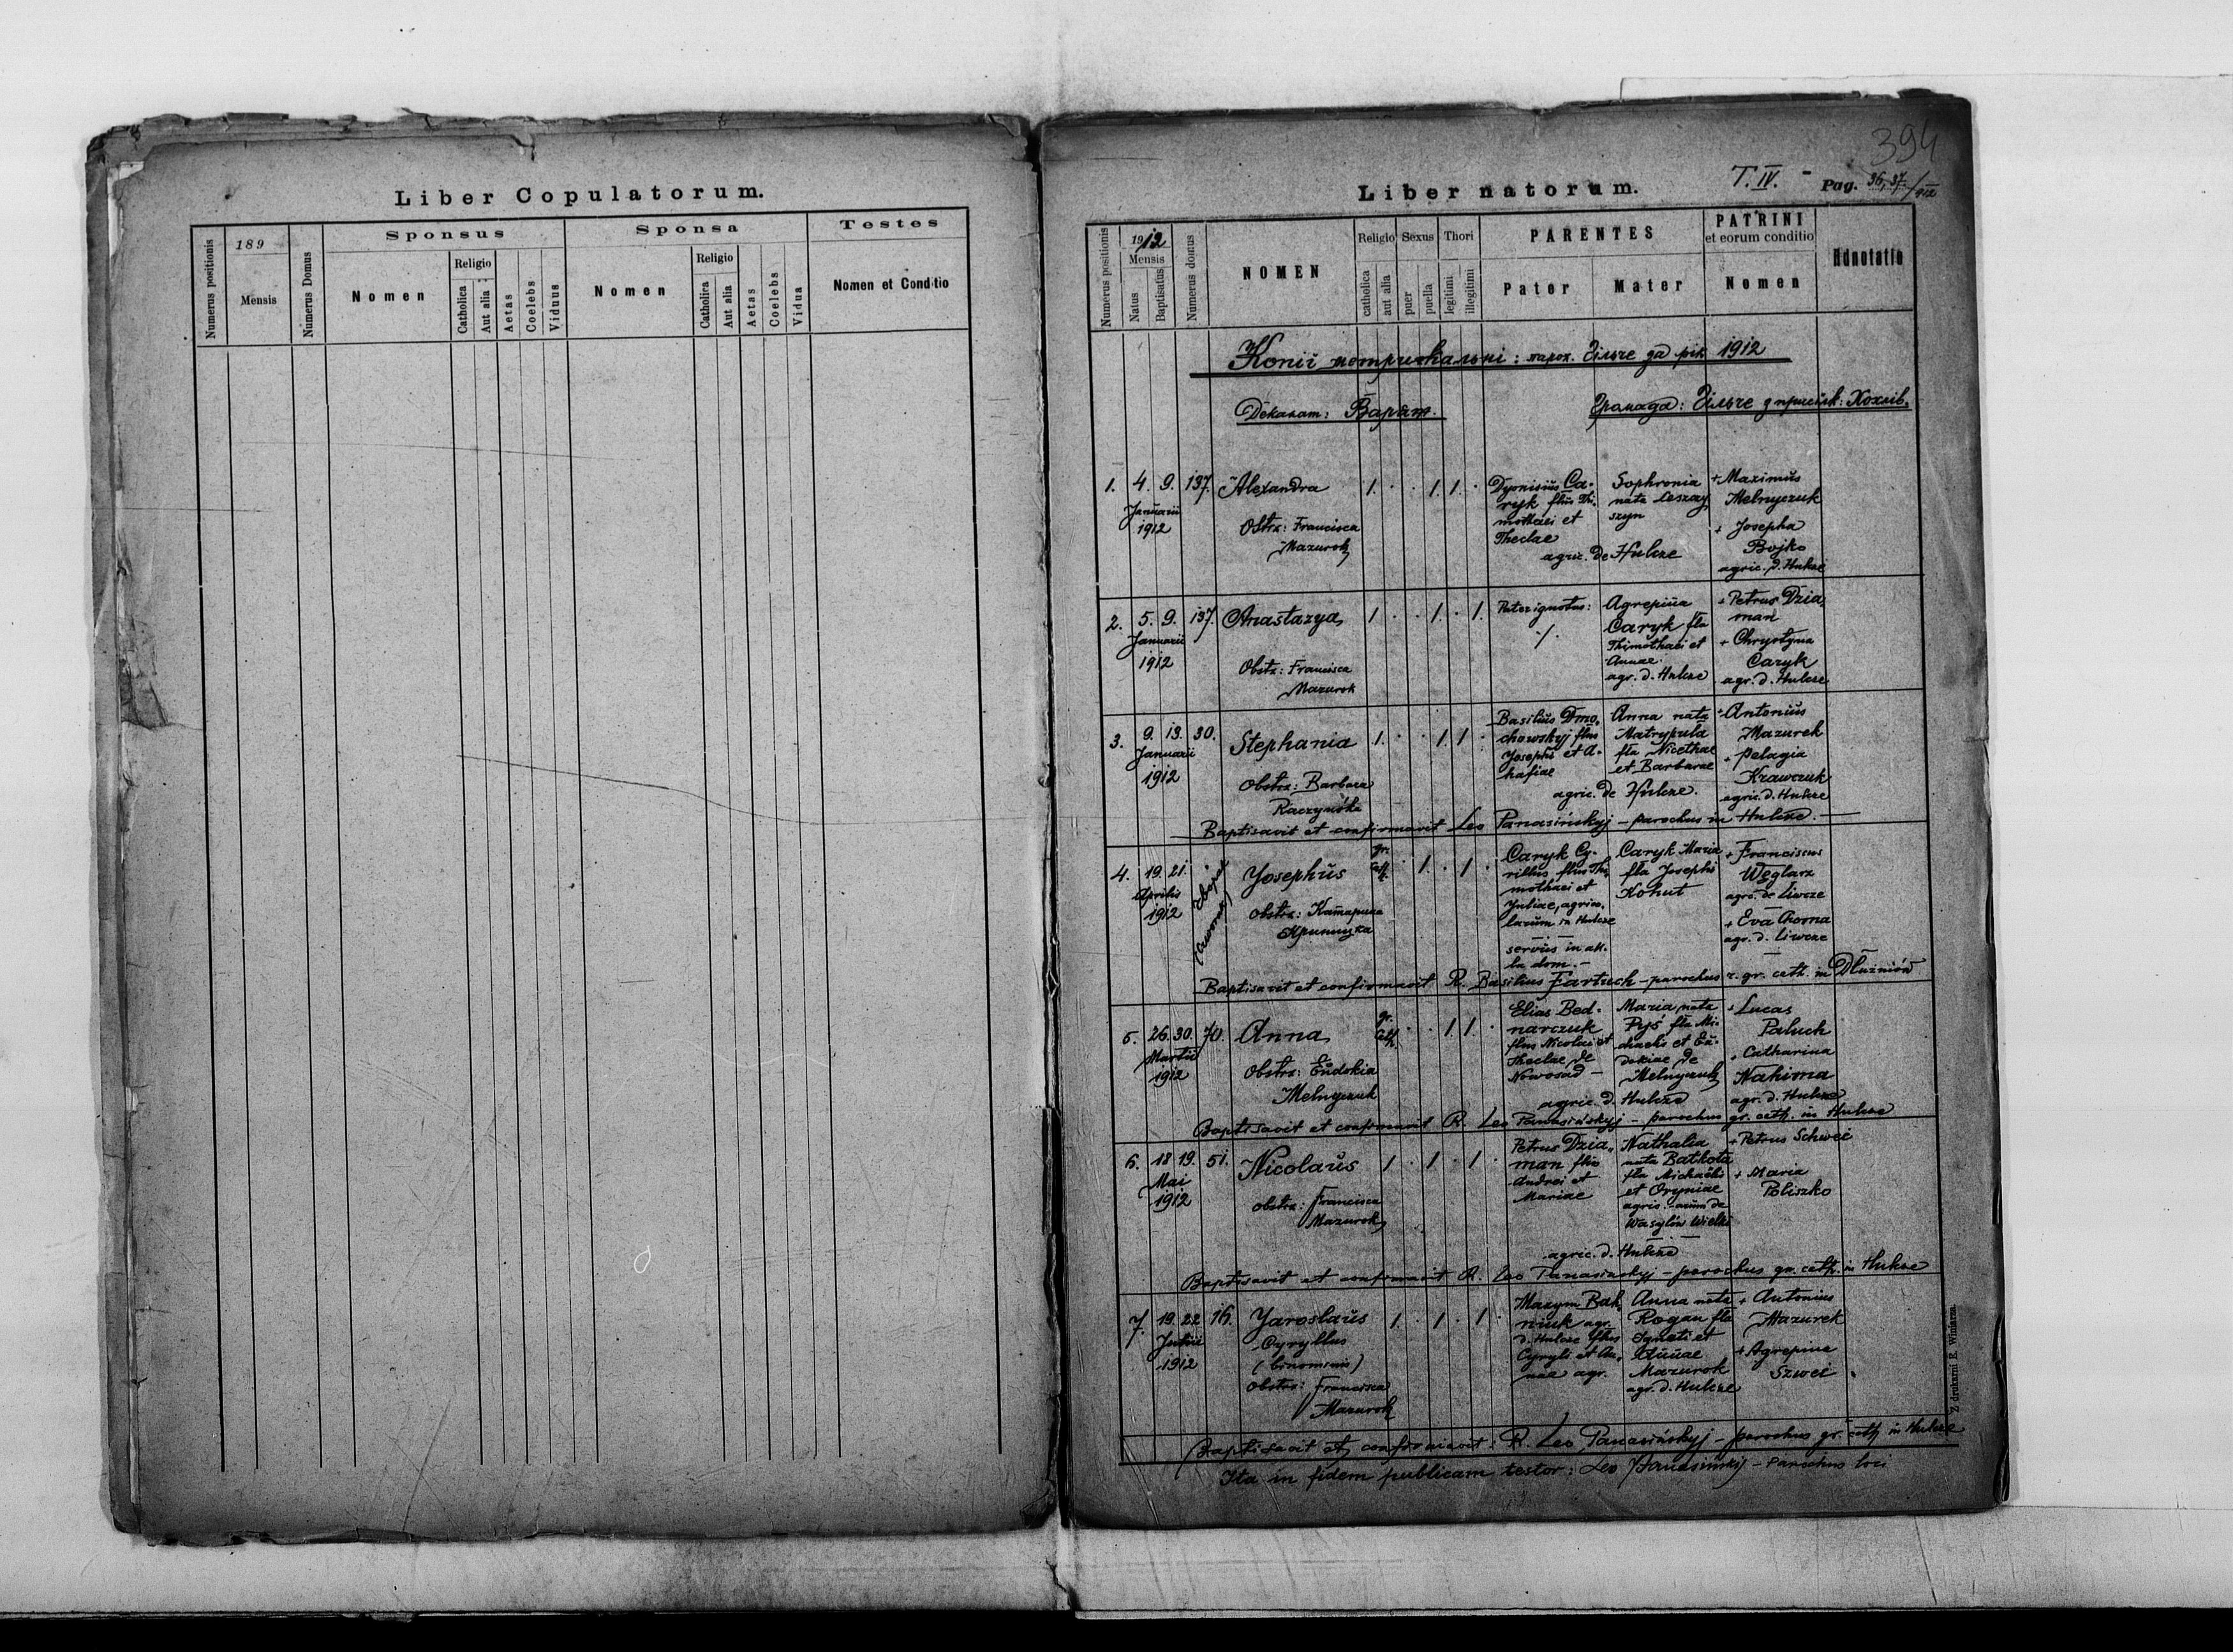 Liber Copulatorum.
Numerus positionis
189
Mensis
Numerus Domus
Sponsus
Nomen
Religio
Catholica
Aut alia
Aetas
Coelebs
Viduus
Sponsa
Nomen
Religio
Catholica
Aut alia
Aetas
Coelebs
Vidua
Testes
Nomen et Conditio
394
T. IV. - Pag. 36, 37/912
Liber natorum.
Numerus positionis
1912
Mensis
Natus
Baptisatus
Numerus domus
NOMEN
Religio
catholica
aut alia
Sexus
puer
puella
Thori
legitimi
illegitimi
PARENTES
Pater
Mater
PATRINI
et eorum conditio
Nomen
Adnotatio
Копії метрикальні: парох. Гільче за рік 1912
Деканат: Варяж.
Громада: Гільче з присілк: Хохлів.
1. 4. 9. 137.
Januarii
1912
Alexandra
Obstr: Francisca
Mazurok
1. . . 1. 1. .
Dyonisius Ca-
ryk flius Thi-
mothaei et
Theclae
Sophronia
nata Leszczy
szyn
agric. de Hulcze
+ Maximus
Melnyczuk
+ Josepha
Bojko
agric. d. Hulcze
2. 5. 9. 137.
Januarii
1912
Anastazya
Obstr: Francisca
Mazurok
1 . . 1. . 1.
Pater ignotus:
./.
Agrepina
Caryk fla
Thimothaei et
Annae.
agr. d. Hulcze
+ Petrus Dzia-
man
+ Chrystyna
Caryk
agr. d. Hulcze
3. 9. 13. 30.
Januarii
1912
Stephania
Obstr: Barbara
Raczyńska
1. . . 1. 1 .
Basilius Dmo-
chowskyj flius
Josephi et A-
hafiae
Anna nata
Matrypula
fla Nicethae
et Barbarae
agric. de Hulcze.
+ Antonius
Mazurek
+ Pelagia
Krawczuk
agric. d. Hulcze
Baptisavit et confirmavit Leo Panasińskyj - parochus in Hulcze.
4. 19. 21.
Aprilis
1912
Josephus
obstr: Катарина
gr.
cath.
. 1. . 1 .
Caryk Cy-
rillus flius Thi-
mothaei et
Juliae, agrico-
larum in Hulcze
servus in au-
la dom. -
Caryk Maria
fla Josephi
Kohut
+ Franciscus
Węglarz
agric. de Liwcze
+ Eva Chorna
agr. d. Liwcze
Baptisavit et confirmavit R. Basilius Fartuch - parochus r. gr. cath. in Dłużniów
5. 26. 30. 70.
Martii
1912
Anna
Obstr: Eudokia
Melnyczuk
gr.
cath.
. . 1. 1. .
Elias Bed-
narczuk
flius Nicolai et
Theclae de
Nowosad -
Maria nata
Pyś fla Mi-
chaelis et Eu-
dokiae de
Melnyczuk
agric. d. Hulcze
+ Lucas
Paluch
+ Catharina
Nahirna
agr. d. Hulcze
Baptisavit et confirmavit R. Leo Panasińskyj - parochus gr. cath. in Hulcze
6. 18 19. 51.
Mai
1912
Nicolaus
obstr: Francisca
Mazurok
1 . 1 . 1 .
Petrus Dzia-
man flius
Andrei et
Mariae
Nathalia
nata Batkota
fla Michaelis
et Oryniae
agric.-arum de
Wasyliw Wielki
agric. d. Hulcze
+ Petrus Schwec
+ Maria
Poliszko
Baptisavit et confirmavit R. Leo Panasińskyj - parochus gr. cath. in Hulcze
7. 19. 22 16.
1912
Jaroslaus
Cyryllus
(binominis)
obstr: Francisca
Mazurok
1. . 1 . 1 .
Maxym Bak
niuk agr.
d. Hulcze flius
Cyryli et An-
nae agr.
Anna nata
Rogan fla
Ignati et
Annae
Mazurok
agr. d. Hulcze
+ Antonius
Mazurek
+ Agrepina
Szwec
Baptisavit et confirmavit: R. Leo Panasińskyj - parochus gr. cath. in Hulcze
Ita in fidem publicam testor: Leo Panasińskyj - Parochus loci
Z drukarni E. Winiarza.